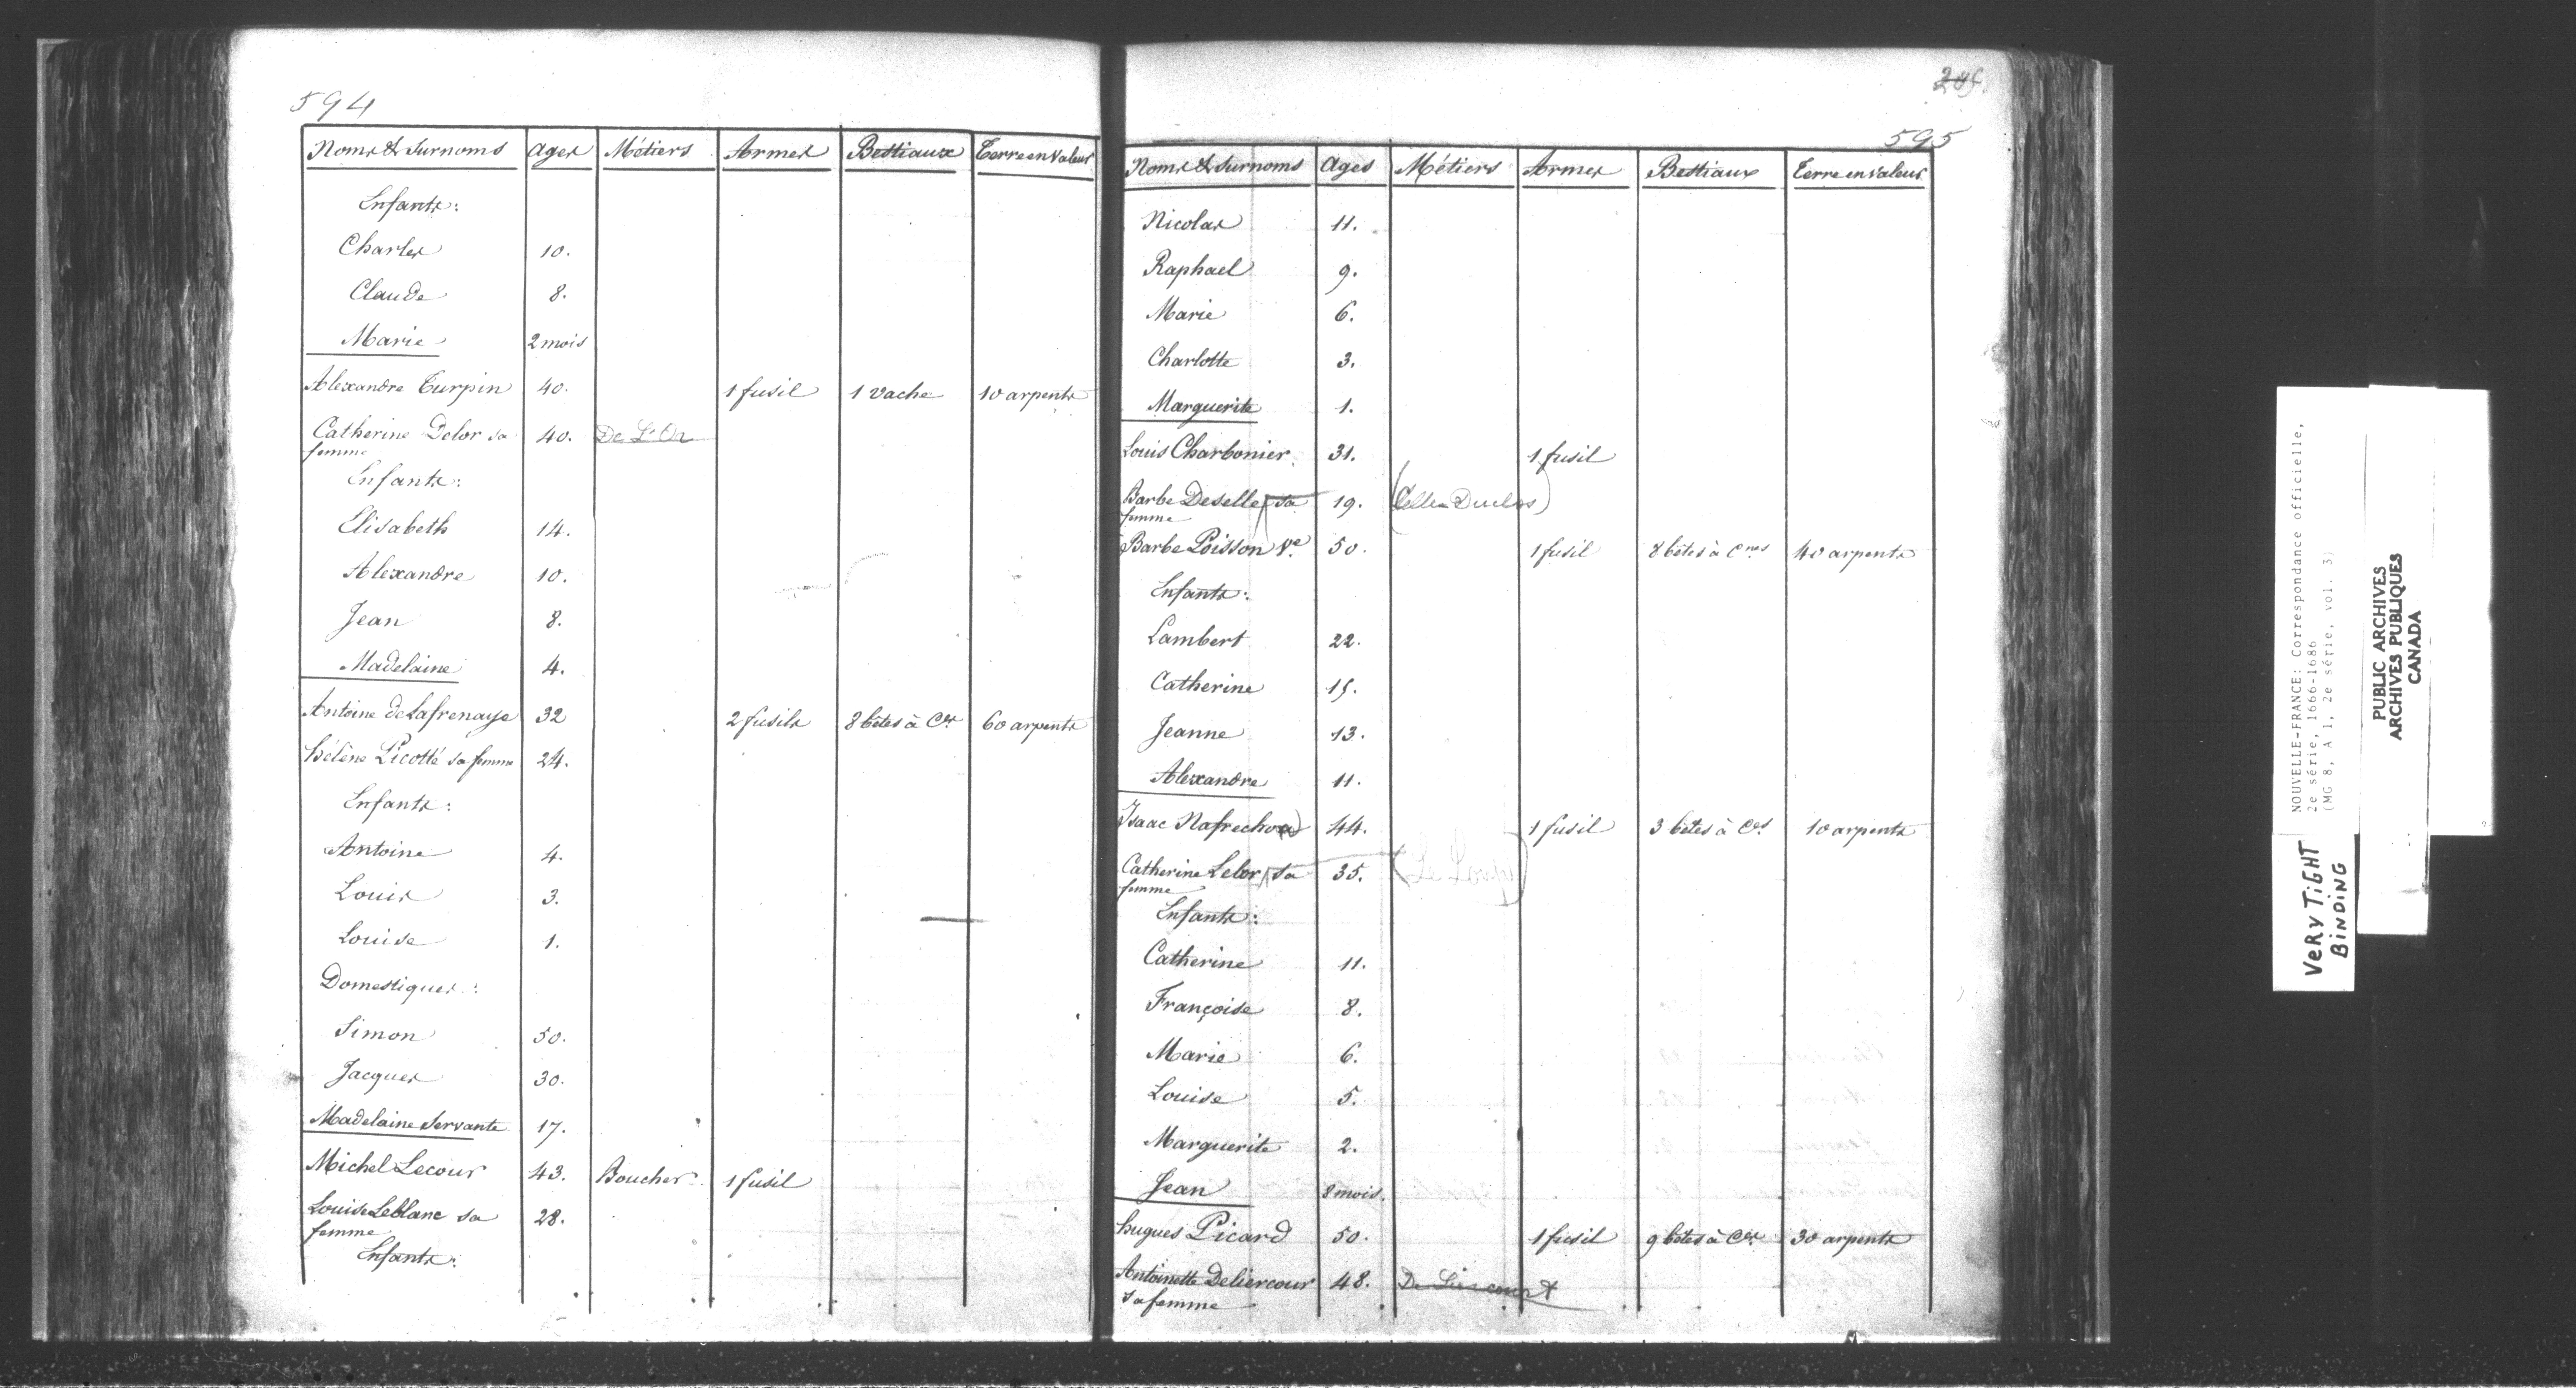 594
Noms & Surnoms Ages Métiers Armes Bestiaux Terre en Valeur
Enfants:
Charles 10.
Claude 8.
Marie 2 mois
Alexandre Turpin 40. 1 fusil 1 vache 10 arpents
Catherine Delor sa 40. De L'Or
femme
Enfants:
Elisabeth 14.
Alexandre 10.
Jean 8.
Madelaine 4.
Antoine de Lafrenaye 32 2 fusils 8 bêtes à Ces 60 arpents
Hélène Picotté sa femme 24.
Enfants:
Antoine 4.
Louis 3.
Louise 1.
Domestiques:
Simon 50.
Jacques 30.
Madelaine Servante 17.
Michel Lecour 43. Boucher 1 fusil
Louise Leblanc sa 28.
femme
Enfants:
595
Noms & Surnoms Ages Métiers Armes Bestiaux Terre en valeur
Nicolas 11.
Raphael 9.
Marie 6.
Charlotte 3.
Marguerite 1.
Louis Charbonier 31. 1 fusil
Barbe Deselle sa 19. (Celle Duclos)
femme
Barbe Poisson Ve. 50. 1 fusil 8 bêtes à Cnes 40 arpents
Enfants:
Lambert 22.
Catherine 15.
Jeanne 13.
Alexandre 11.
Isaac Nafrechou 44. 1 fusil 3 bêtes à Ces 10 arpents
Catherine Lelor sa 35.
femme
Enfants:
Catherine 11.
Françoise 8.
Marie 6.
Louise 5.
Marguerite 2.
Jean 8 mois.
hugues Picard 50. 1 fusil 9 bêtes à Ces 30 arpents
Antoinette Deliercour 48. De Liercourt
sa femme
NOUVELLE-FRANCE: Correspondance officielle,
2e série, 1666-1686
(MG 8, A 1, 2e série, vol. 3)
PUBLIC ARCHIVES
ARCHIVES PUBLIQUES
CANADA
VERY TIGHT
BINDING